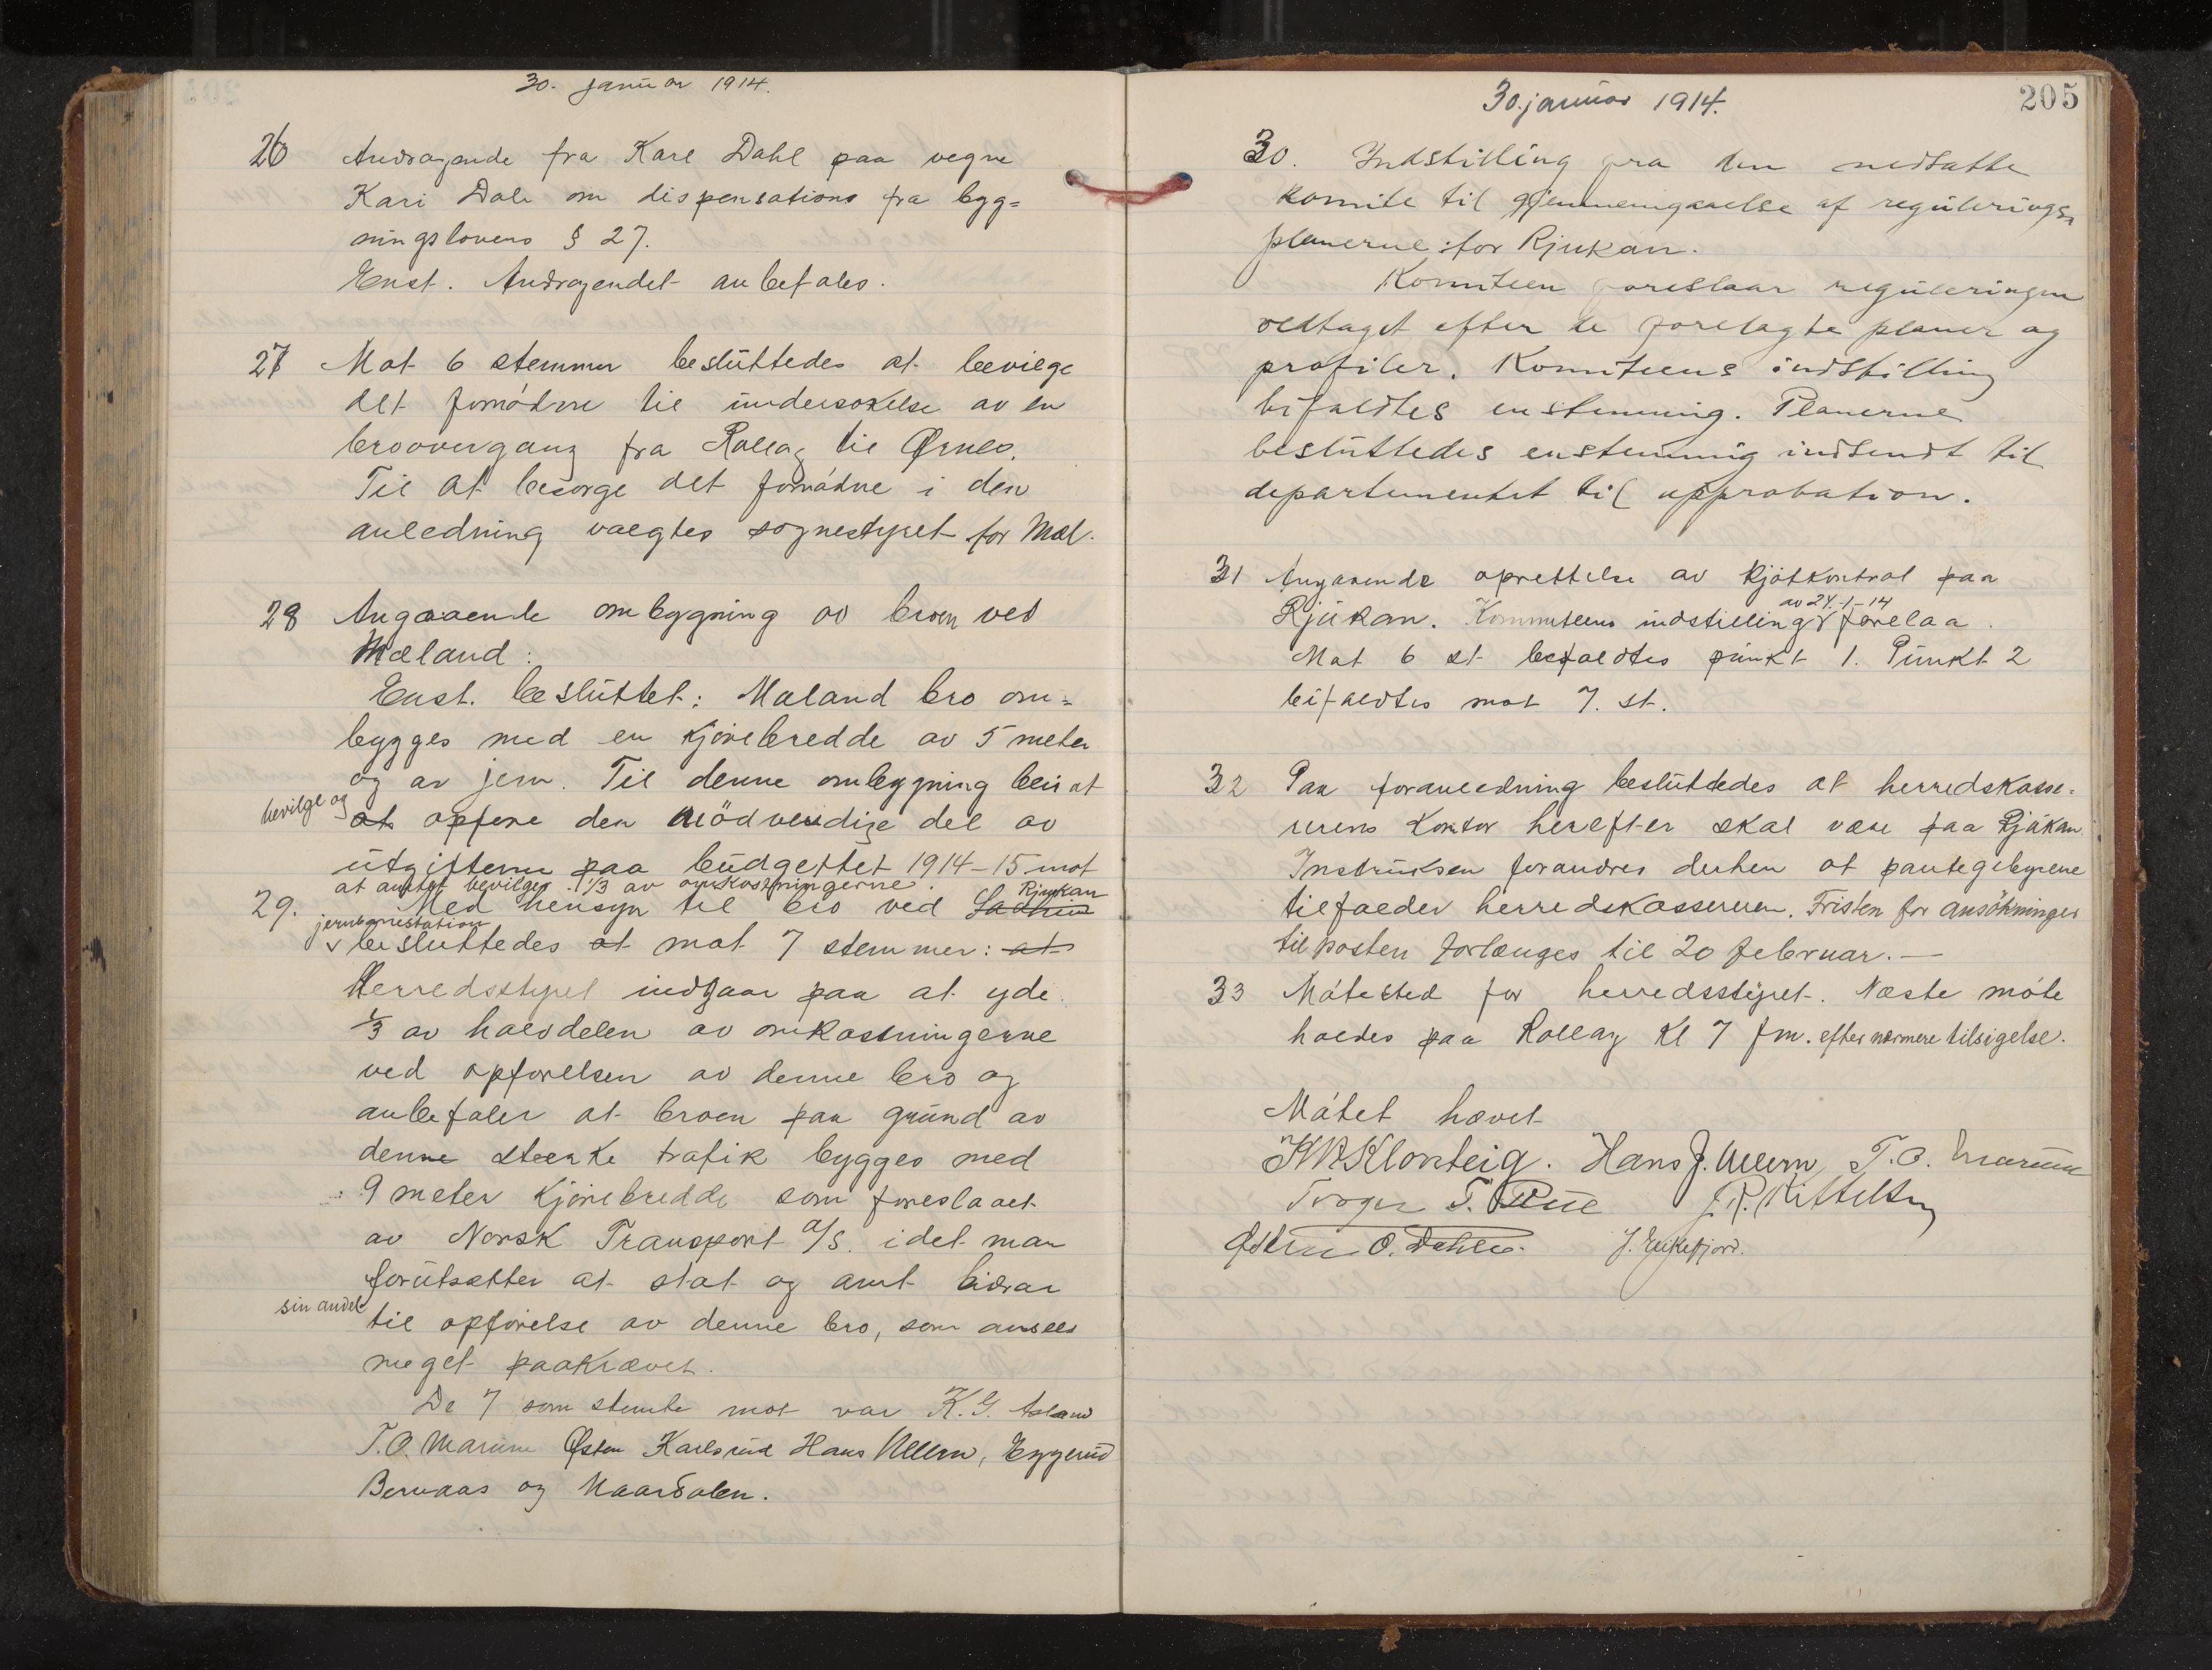 30. januar 1914.
26 Andragende fra Karl Dahl paa vegne
Kari Dale om dispensations fra byg=
ningslovens § 27.
Enst. Andragendet anbefales.
27 Mot 6 stemmer besluttedes at bevilge
det fornødne til undersøkelse av en
broovergang fra Rollag til Ørnes.
Til at besørge det fornødne i den
anledning valgtes sognestyret for Mæl.
28 Angaaende ombygning av broen ved
Mæland:
Enst. besluttet: Mæland bro om=
bygges med en kjørebredde av 5 meter
og av jern. Til denne ombygning beis at
bevilge og at opføre den nödvendige del av
utgifterne paa budgettet 1914-15 mot
at amtet bevilger 1/3 av omkostningerne.
29. Med hensyn til bro ved Rjukan
jernbanestation
besluttedes at mot 7 stemmer: at
Herredsstyret indgaar paa at yde
1/3 av halvdelen av omkostningerne
ved opførelsen av denne bro og
anbefaler at broen paa grund av
denne sterke trafik bygges med
9 meter kjørebredde som foreslaaet
av Norsk Transport a/s. idet man
forutsætter at stat og amt bidrar
sin andel til opførelse av denne bro, som ansees
meget paakrævet.
De 7 som stemte mot var K. G. Aaland
T. O. Marum Østen Karlsrud Hans Ullern, Eggerud
Bernaas og Maardalen.
30. januar 1914.
205
30. Indstilling fra den nedsatte
komite til gjennemgaaelse af regulerings=
planerne for Rjukan.
Komiteen foreslaar reguleringen
vedtaget efter de forelagte planer og
profiler. Komiteens indstilling
bifaldtes enstemmig. Planerne
besluttedes enstemmig indsendt til
departementet til approbation.
31 Angaaende oprettelse av kjøtkontrol paa
av 24.-1-14
Rjukan. Kommiteens indstilling forelaa.
Mot 6 st bifaldtes punkt 1. Punkt 2
bifaldtes mot 7. st.
32 Paa foranledning besluttedes at herredskasse=
rerens kontor herefter skal være paa Rjukan.
Instruksen forandres derhen at pantegebyrene
tilfalder herredskassereren. Fristen for ansökninger
til posten forlænges til 20 februar. —
33 Møtested for herredsstyret. Næste møte
holdes paa Rollag Kl 7 fm. efter nærmere tilsigelse.
Møtet hævet
K. Klonteig. Hans J. Ullern T. O. Marum
T. J. R. Kittelsen
Østen O. Dahle.